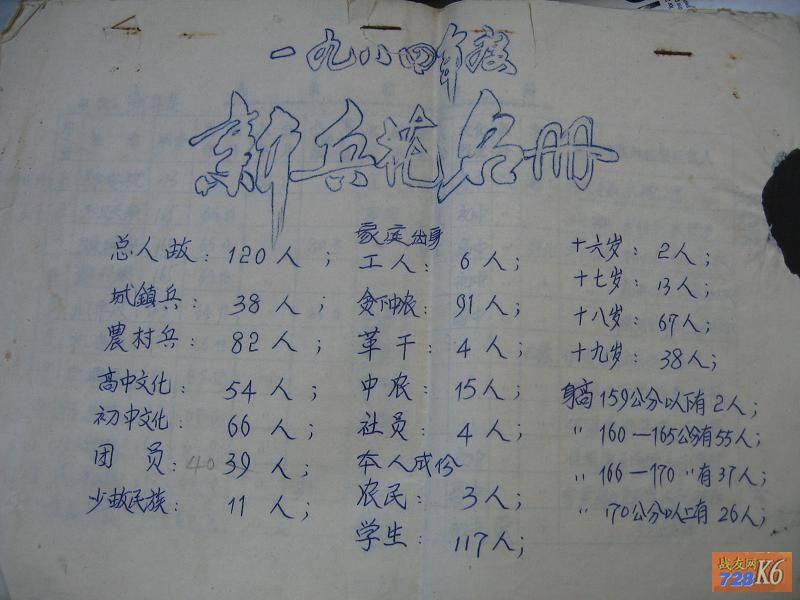 一九八四年度
新兵花名册
总人数：120人；
城鎮兵：38人；
農村兵：82人；
高中文化：54人；
初中文化：66人；
团员：40 39人；
少数民族：11人；
家庭出身
工人：6人；
贫下中农：91人；
革干：4人；
中农：15人；
社员：4人；
本人成份
农民：3人；
学生：117人；
十六岁：2人；
十七岁：13人；
十八岁：67人；
十九岁：38人；
身高159公分以下有2人；
〃 160—165公分有55人；
〃 166—170 〃有37人；
〃 170公分以上有26人；
战友网
728K6